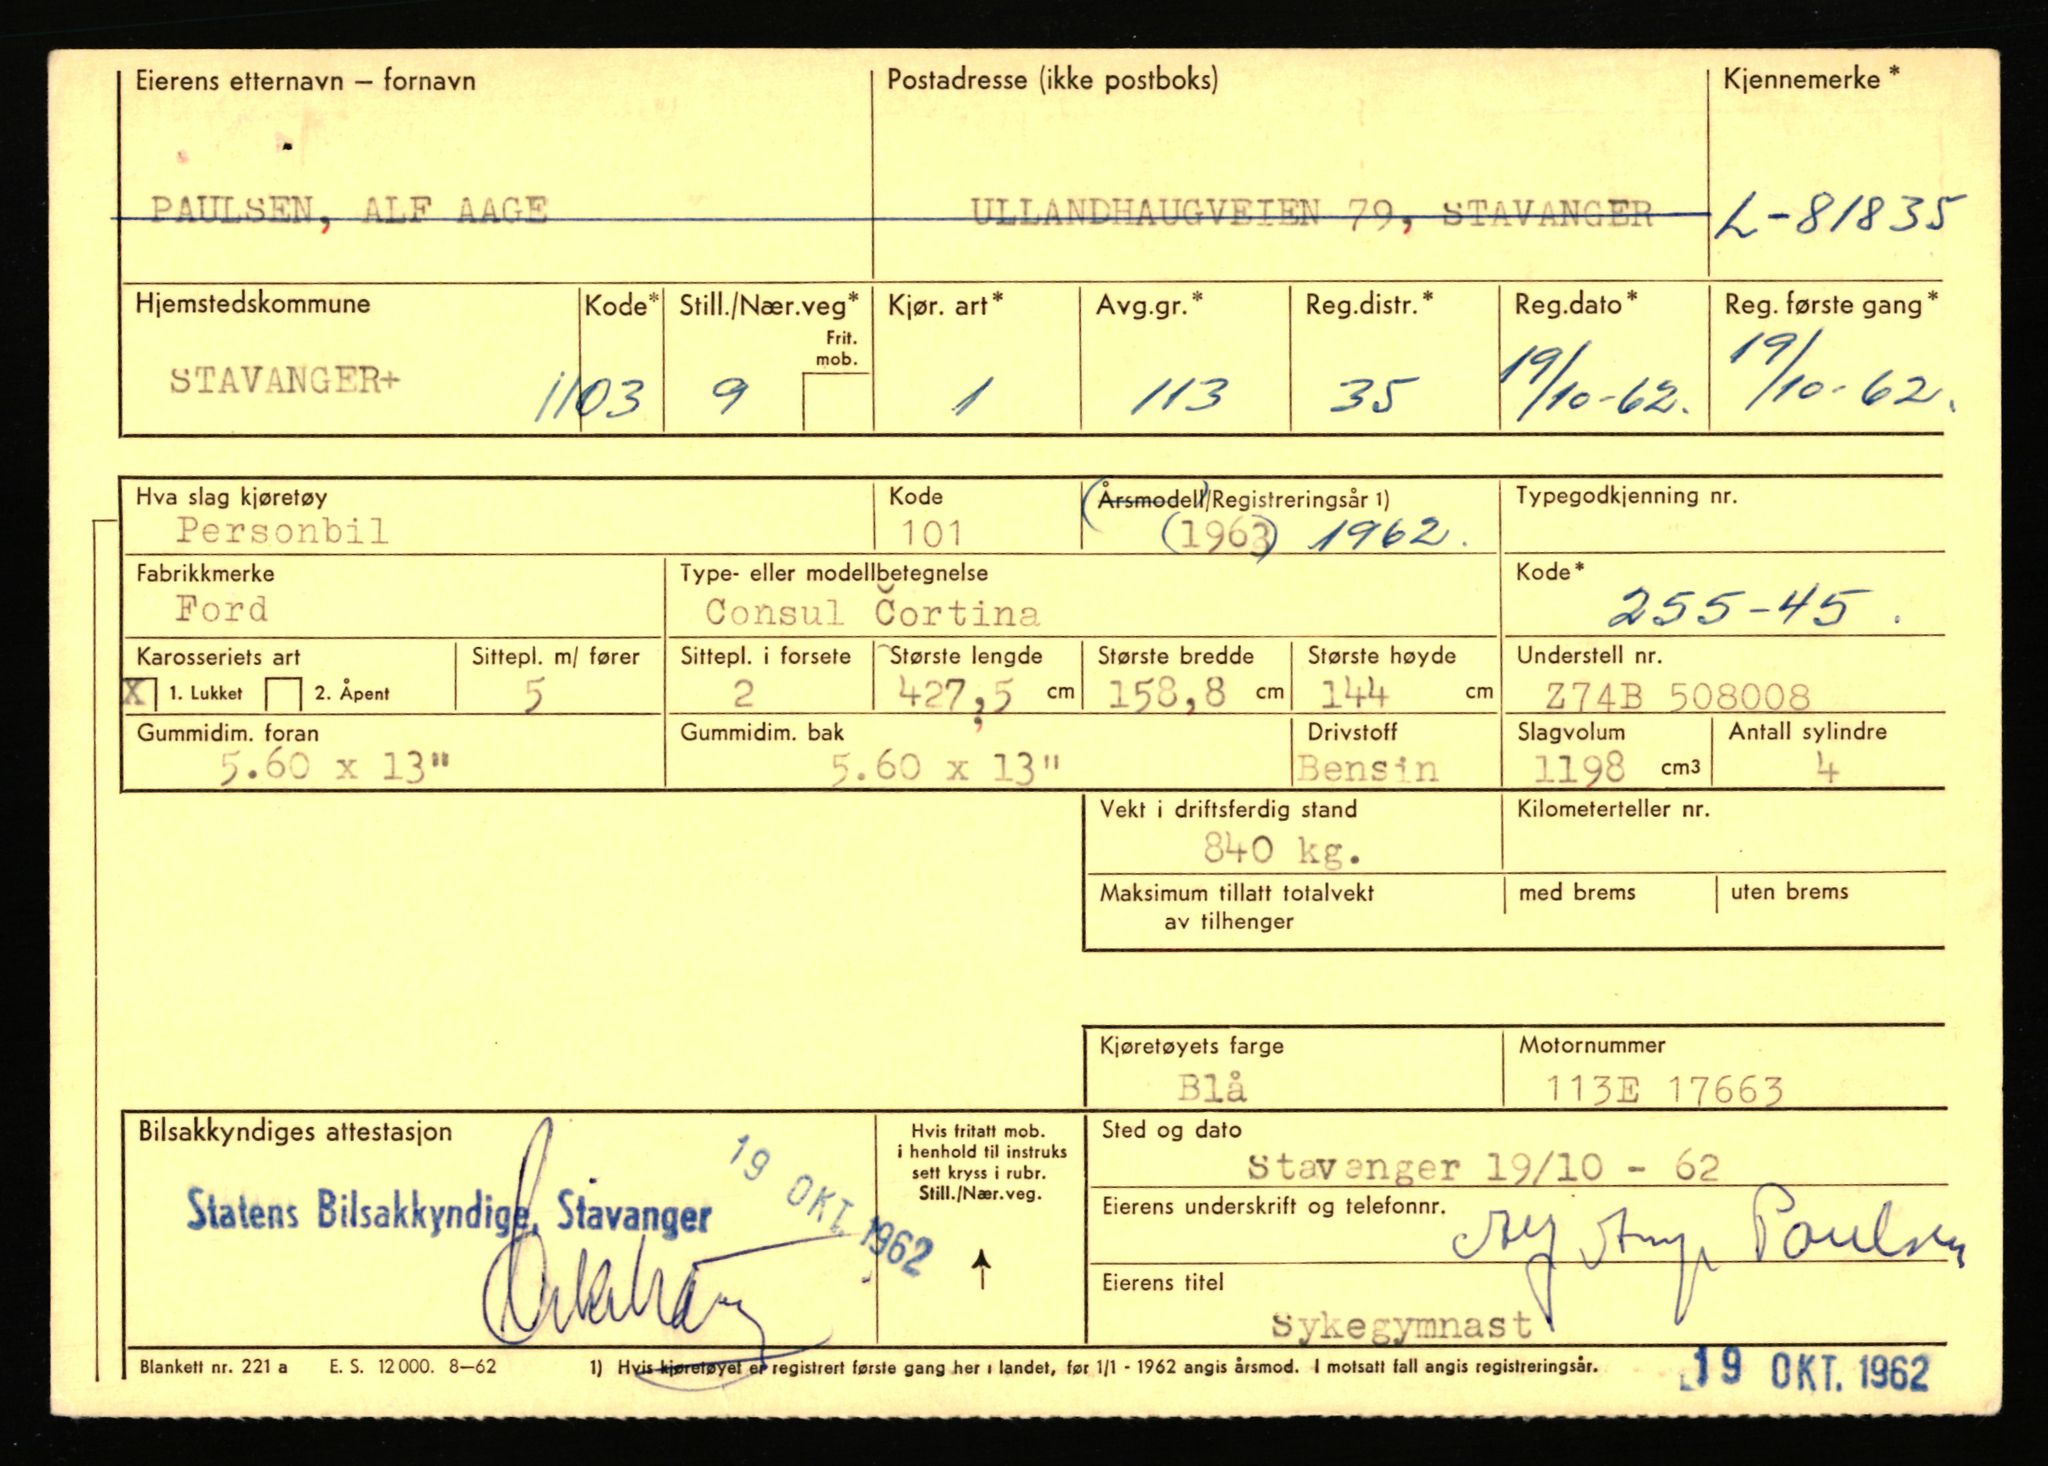 Eierens etternavn – fornavn Postadresse (ikke postboks) Kjennemerke*
PAULSEN, ALF AAGE ULLANDHAUGVEIEN 79, STAVANGER L-81835
Hjemstedskommune Kode* Still./Nær.veg* Kjør. art* Avg.gr.* Reg.distr.* Reg.dato* Reg. første gang*
Frit.
mob.
STAVANGER+ 1103 9 1 113 35 19/10-62. 19/10-62.
Hva slag kjøretøy Kode (Årsmodell)/Registreringsår 1) Typegodkjenning nr.
Personbil 101 (1963) 1962.
Fabrikkmerke Type- eller modellbetegnelse Kode*
Ford Consul Cortina 255-45.
Karosseriets art Sittepl. m/ fører Sittepl. i forsete Største lengde Største bredde Største høyde Understell nr.
X 1. Lukket 2. Åpent 5 2 427,5 cm 158,8 cm 144 cm Z74B 508008
Gummidim. foran Gummidim. bak Drivstoff Slagvolum Antall sylindre
5.60 x 13" 5.60 x 13" Bensin 1198 cm3 4
Vekt i driftsferdig stand Kilometerteller nr.
840 kg.
Maksimum tillatt totalvekt med brems uten brems
av tilhenger
Kjøretøyets farge Motornummer
Blå 113E 17663
Bilsakkyndiges attestasjon
Statens Bilsakkyndige, Stavanger
19 OKT. 1962
Hvis fritatt mob.
i henhold til instruks
sett kryss i rubr.
Still./Nær.veg.
Sted og dato
Stavanger 19/10 - 62
Eierens underskrift og telefonnr.
Alf Aage Paulsen
Eierens titel
Sykegymnast
Blankett nr. 221 a E. S. 12000. 8–62 1) Hvis kjøretøyet er registrert første gang her i landet, før 1/1 - 1962 angis årsmod. I motsatt fall angis registreringsår.
19 OKT. 1962